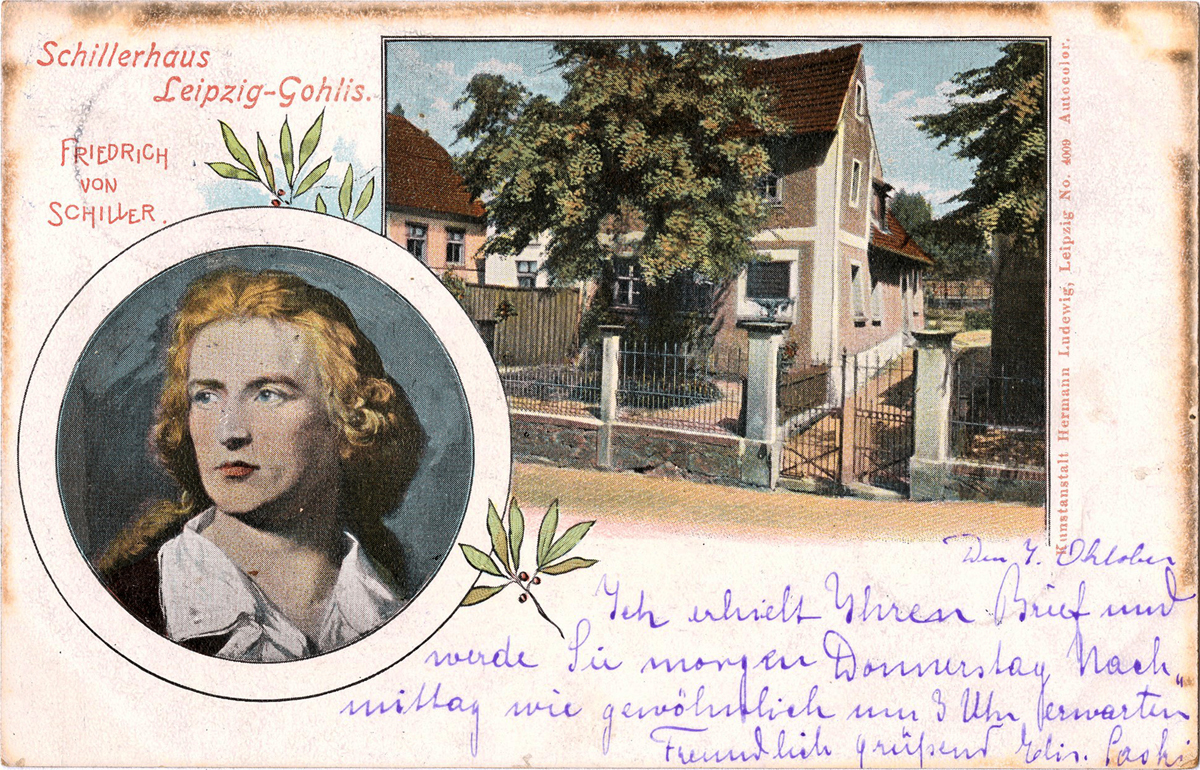 Schillerhaus
Leipzig-Gohlis.
FRIEDRICH
VON
SCHILLER.
Kunstanstalt Hermann Ludewig, Leipzig No. 4009 Autocolor.
Den 7. Oktober
Ich erhielt Ihren Brief und
werde Sie morgen Donnerstag Nach-
mittag wie gewöhnlich um 3 Uhr erwarten
Freundlich grüßend Elis.